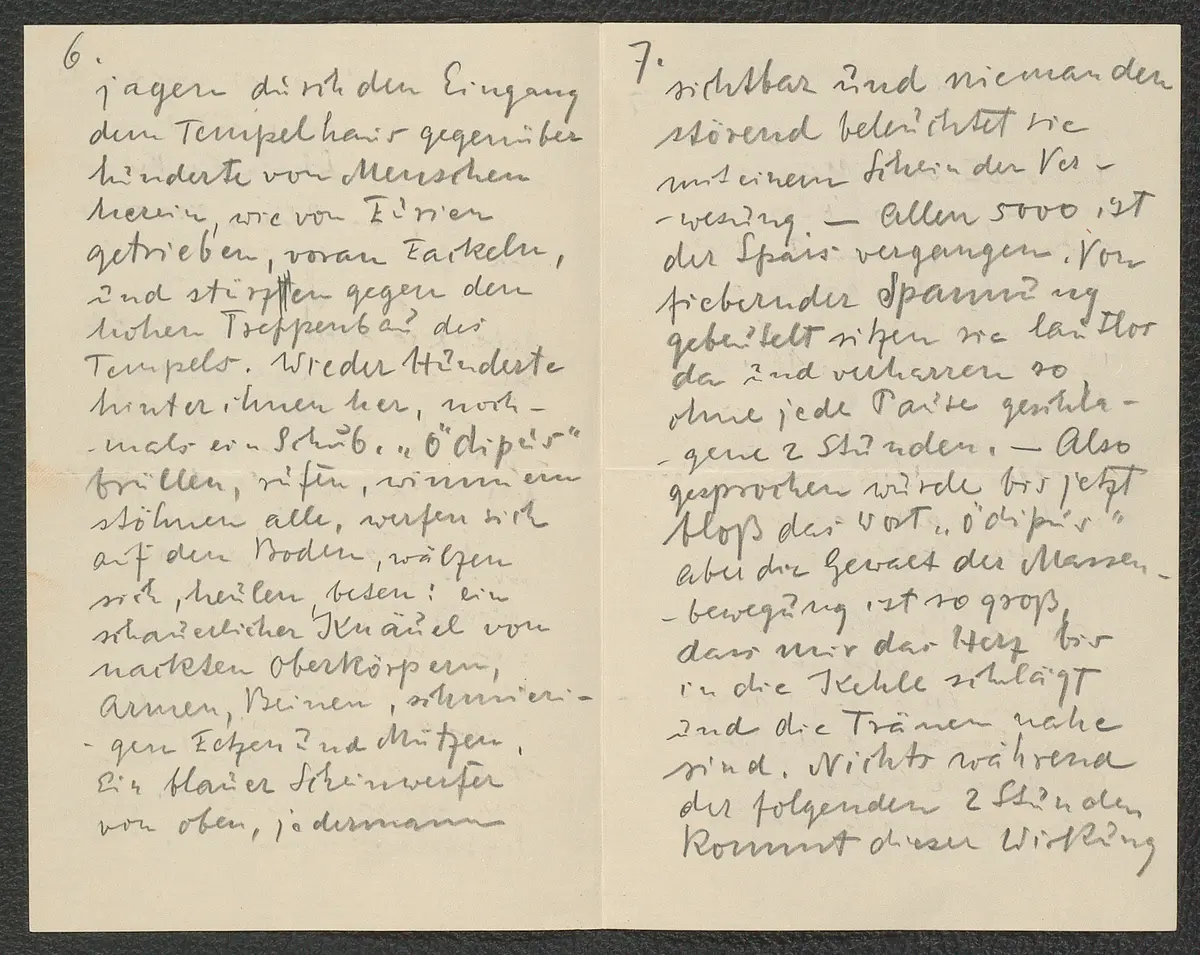 6.
jagen durch den Eingang
dem Tempelhaus gegenüber
hunderte von Menschen
herein, wie von Furien
getrieben, voran Fackeln,
und stürzten gegen den
hohen Treppenbau des
Tempels. Wieder Hunderte
hinter ihnen her, noch-
-mals ein Schub. „Ödipus"
brüllen, rufen, wimmern
stöhnen alle, werfen sich
auf den Boden, wälzen
sich, heulen, beten: ein
schauerlicher Knäuel von
nackten Oberkörpern,
Armen, Beinen, schmieri-
-gen Fetzen und Mützen.
Ein blauer Scheinwerfer
von oben, jedermann
7.
sichtbar und niemanden
störend beleuchtet sie
mit einem Schein der Ver-
-wesung. — Allen 5000 ist
der Spass vergangen. Von
fiebernder Spannung
gebeutelt sitzen sie lautlos
da und verharren so
ohne jede Pause geschla-
-gene 2 Stunden. — Also
gesprochen wurde bis jetzt
bloß das Wort „Ödipus"
aber die Gewalt der Massen-
-bewegung ist so groß,
dass mir das Herz bis
in die Kehle schlägt
und die Tränen nahe
sind. Nichts während
der folgenden 2 Stunden
kommt dieser Wirkung